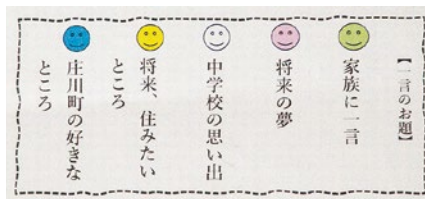 【一言のお題】
家族に一言
将来の夢
中学校の思い出
将来、住みたい
ところ
庄川町の好きな
ところ